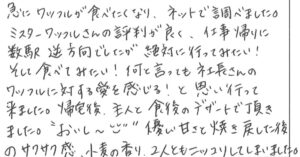 急にワッフルが食べたくなり、ネットで調べました。
ミスターワッフルさんの評判が良く、仕事帰りに
数駅逆方向でしたが絶対に行ってみたい！
そして食べてみたい！何と言っても社長さんの
ワッフルに対する愛を感じる！と思い行って
来ました。帰宅後、主人と食後のデザートで頂き
ました。"おいし〜"優しい甘さと焼き戻した後
のサクサク感、小麦の香り、2人ともニッコリしてしまいました。